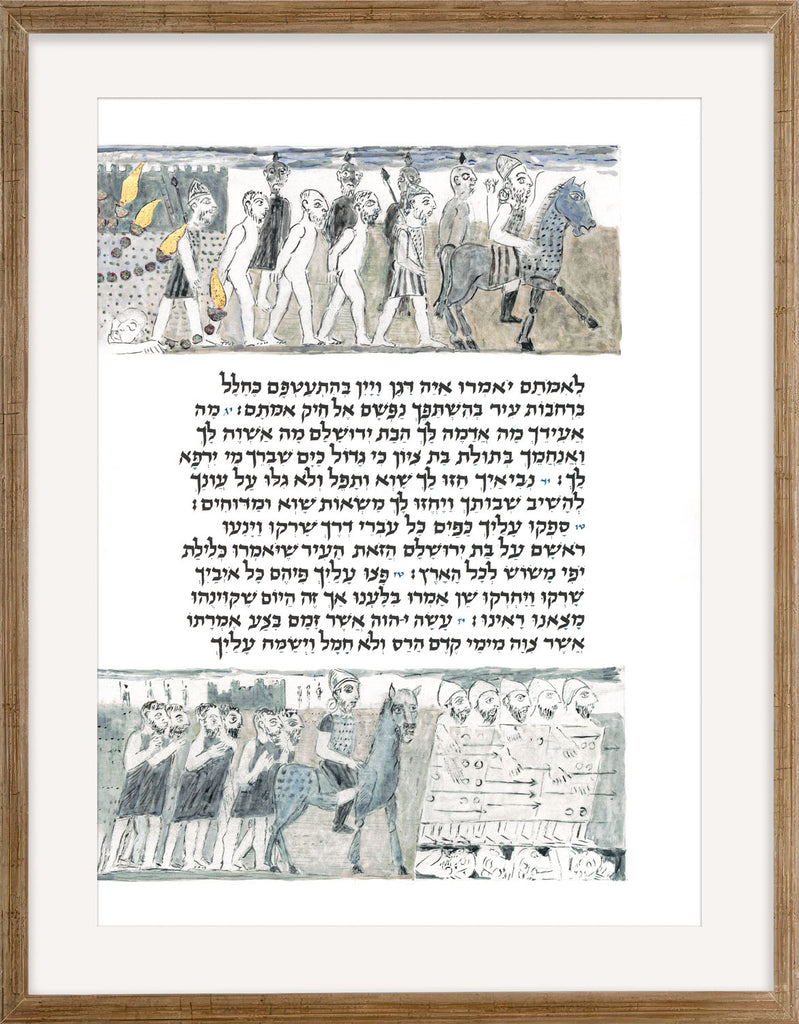 לְאִמֹּתָם יֹאמְרוּ אַיֵּה דָּגָן וָיָיִן בְּהִתְעַטְּפָם כֶּחָלָל
בִּרְחֹבוֹת עִיר בְּהִשְׁתַּפֵּךְ נַפְשָׁם אֶל חֵיק אִמֹּתָם: יג מָה
אֲעִידֵךְ מָה אֲדַמֶּה לָּךְ הֲבַת יְרוּשָׁלִַם מָה אַשְׁוֶה לָּךְ
וַאֲנַחֲמֵךְ בְּתוּלַת בַּת צִיּוֹן כִּי גָדוֹל כַּיָּם שִׁבְרֵךְ מִי יִרְפָּא
לָךְ: יד נְבִיאַיִךְ חָזוּ לָךְ שָׁוְא וְתָפֵל וְלֹא גִלּוּ עַל עֲוֹנֵךְ
לְהָשִׁיב שְׁבוּתֵךְ וַיֶּחֱזוּ לָךְ מַשְׂאוֹת שָׁוְא וּמַדּוּחִים:
טו סָפְקוּ עָלַיִךְ כַּפַּיִם כָּל עֹבְרֵי דֶרֶךְ שָׁרְקוּ וַיָּנִעוּ
רֹאשָׁם עַל בַּת יְרוּשָׁלִָם הֲזֹאת הָעִיר שֶׁיֹּאמְרוּ כְּלִילַת
יֹפִי מָשׂוֹשׂ לְכָל הָאָרֶץ: טז פָּצוּ עָלַיִךְ פִּיהֶם כָּל אֹיְבַיִךְ
שָׁרְקוּ וַיַּחַרְקוּ שֵׁן אָמְרוּ בִּלָּעְנוּ אַךְ זֶה הַיּוֹם שֶׁקִּוִּינֻהוּ
מָצָאנוּ רָאִינוּ: יז עָשָׂה י-הוה אֲשֶׁר זָמָם בִּצַּע אֶמְרָתוֹ
אֲשֶׁר צִוָּה מִימֵי קֶדֶם הָרַס וְלֹא חָמָל וַיְשַׂמַּח עָלַיִךְ